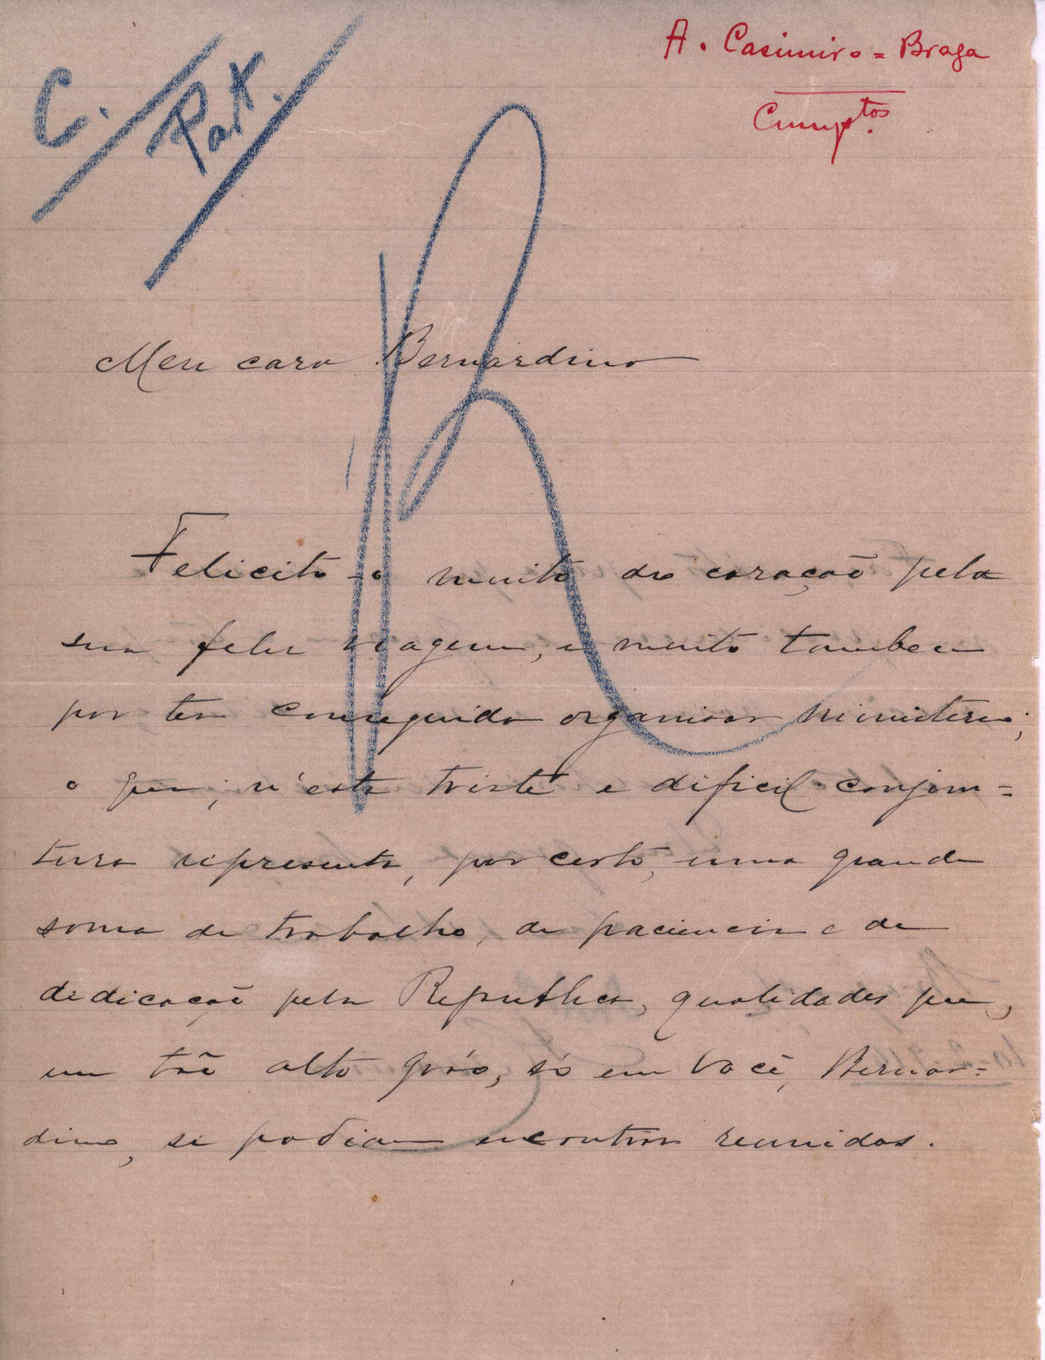 A. Casimiro = Braga
Cump.tos
C.
Part.
R
Meu caro Bernardino
Felicito-o muito do coração pela
sua feliz viagem, e muito tambem
por ter conseguido organisar ministerio;
o que, n'esta triste e dificil conjun=
tura representa, por certo, uma grande
soma de trabalho, de paciencia e de
dedicação pela Republica, qualidades que,
em tão alto gráo, só em Você, Bernar=
dino, se podiam encontrar reunidas.